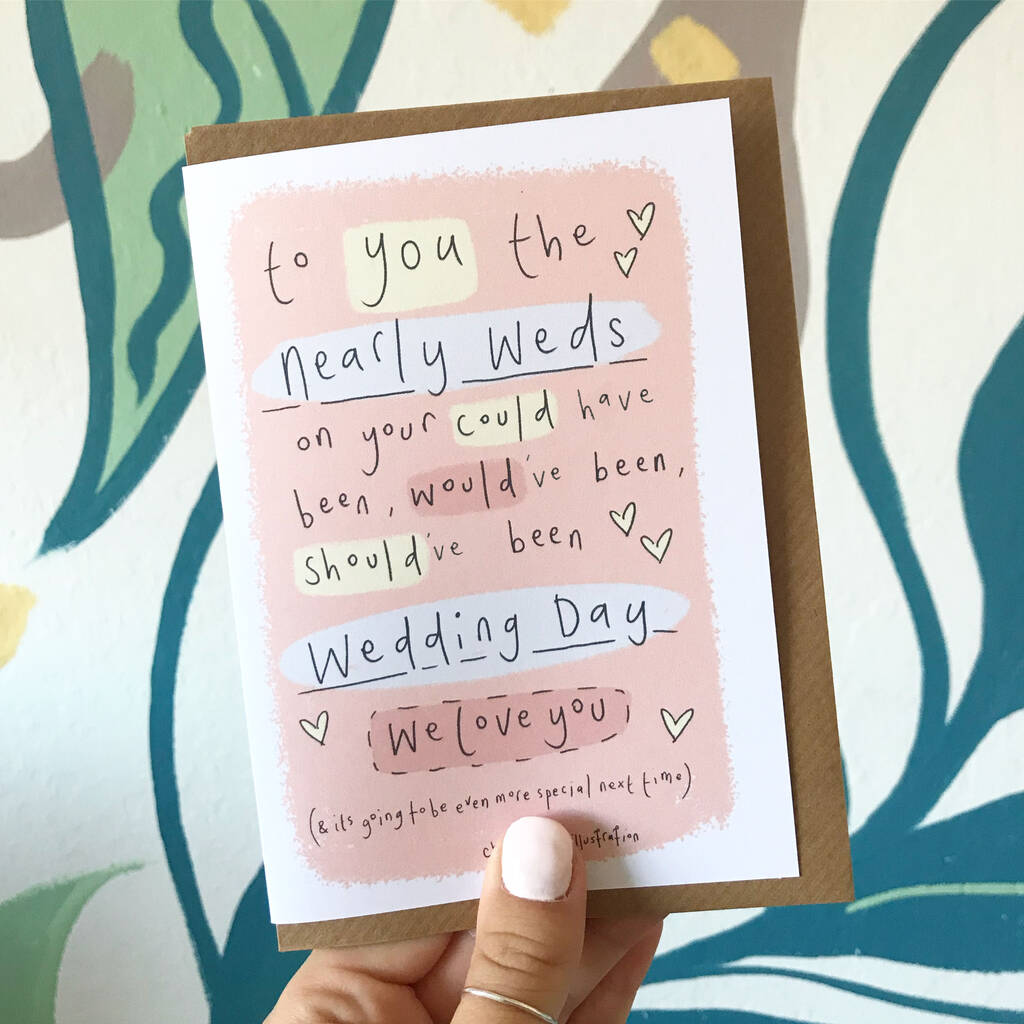 to you the
nearly Weds
on your could have
been, would've been,
should've been
Wedding Day
We love you
(& its going to be even more special next time)
illustration